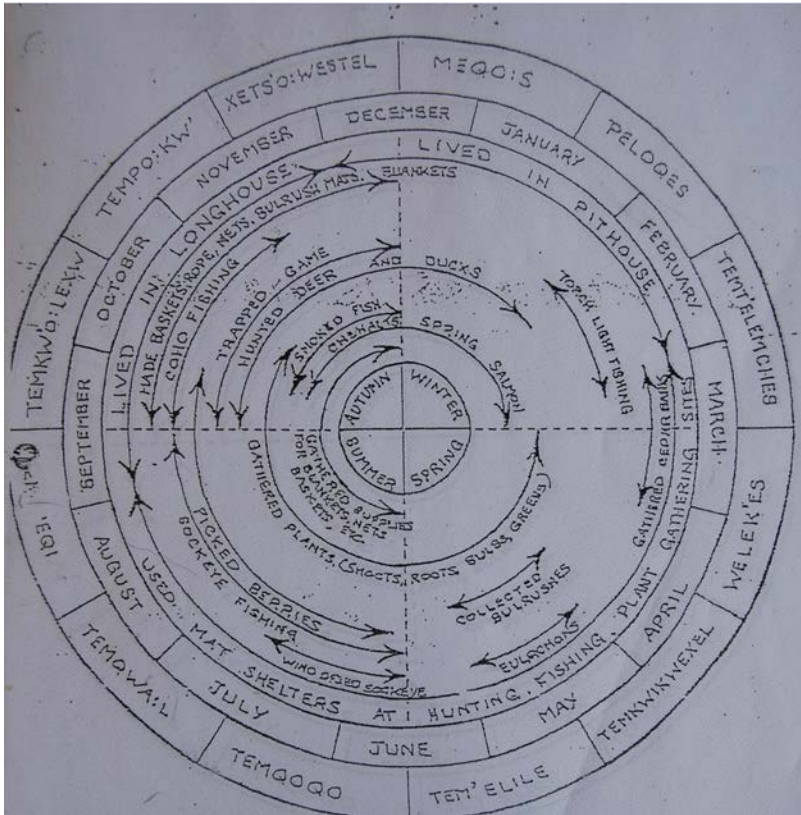 XETS'O:WESTEL
MEQO:S
PELOQES
TEMT'ELEMCHES
WELEK'ES
TEMKWIKWEXEL
TEM'ELILE
TEMQOQO
TEMQWA:L
IQE:
TEMKW'O:LEXW
TEMPO:KW'
DECEMBER
JANUARY
FEBRUARY
MARCH
APRIL
MAY
JUNE
JULY
AUGUST
SEPTEMBER
OCTOBER
NOVEMBER
LIVED IN PITHOUSE
LIVED IN LONGHOUSE
USED MAT SHELTERS AT HUNTING, FISHING, PLANT GATHERING
MADE BASKETS, ROPE, NETS, BULRUSH MATS, BLANKETS
COHO FISHING
TRAPPED GAME
HUNTED DEER AND DUCKS
SMOKED FISH
CHEHALIS SPRING SALMON
TORCH LIGHT FISHING
GATHERED CEDAR BARK
GATHERED PLANTS, (SHOOTS, ROOTS BULBS, GREENS)
GATHERED SUPPLIES
FOR BLANKETS, NETS
BASKETS ETC
COLLECTED
BULRUSHES
EULACHONS
PICKED BERRIES
SOCKEYE FISHING
WIND DRIED SOCKEYE
AUTUMN
WINTER
SUMMER
SPRING